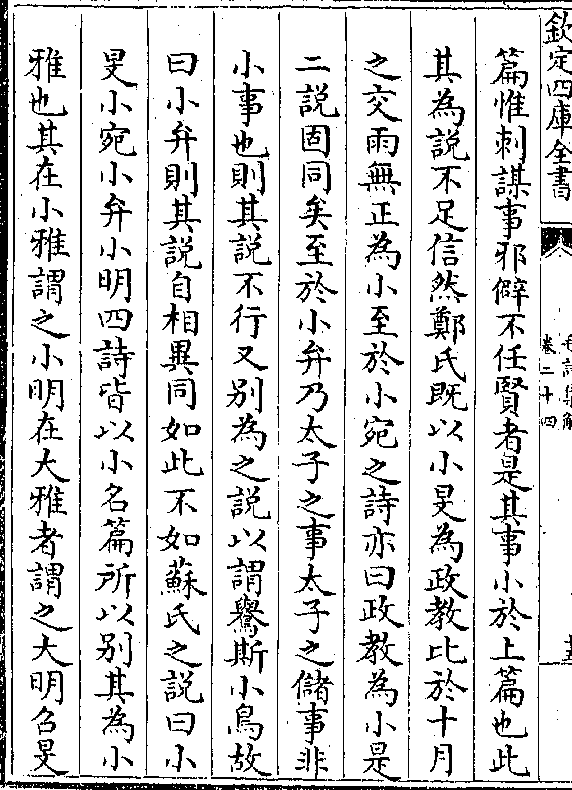 欽定四庫全書
毛詩集解
卷二十四
篇惟刺謀事邪僻不任賢者是其事小於上篇也此
其為說不足信然鄭氏既以小旻為政教比於十月
之交雨無正為小至於小宛之詩亦曰政教為小是
二說固同矣至於小弁乃太子之事太子之儲事非
小事也則其說不行又別為之說以謂鸒斯小鳥故
曰小弁則其說自相異同如此不如蘇氏之說曰小
旻小宛小弁小明四詩皆以小名篇所以別其為小
雅也其在小雅謂之小明在大雅者謂之大明召旻